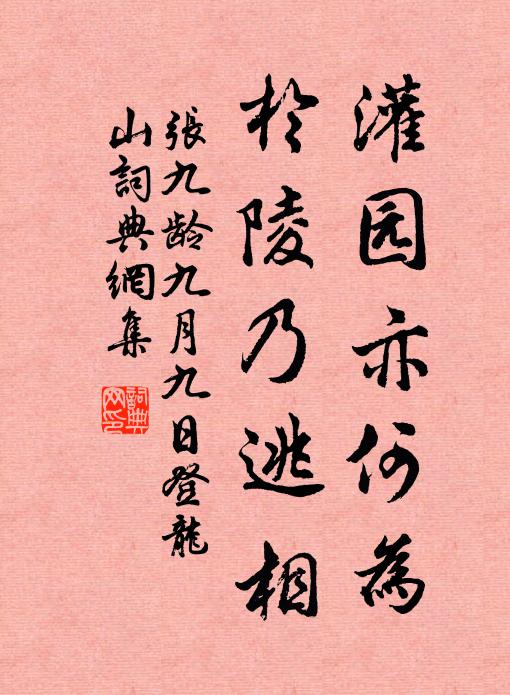 灌园亦何為
於陵乃逃相
張九龄九月九日登龍
山詞典網集
詞典
网印